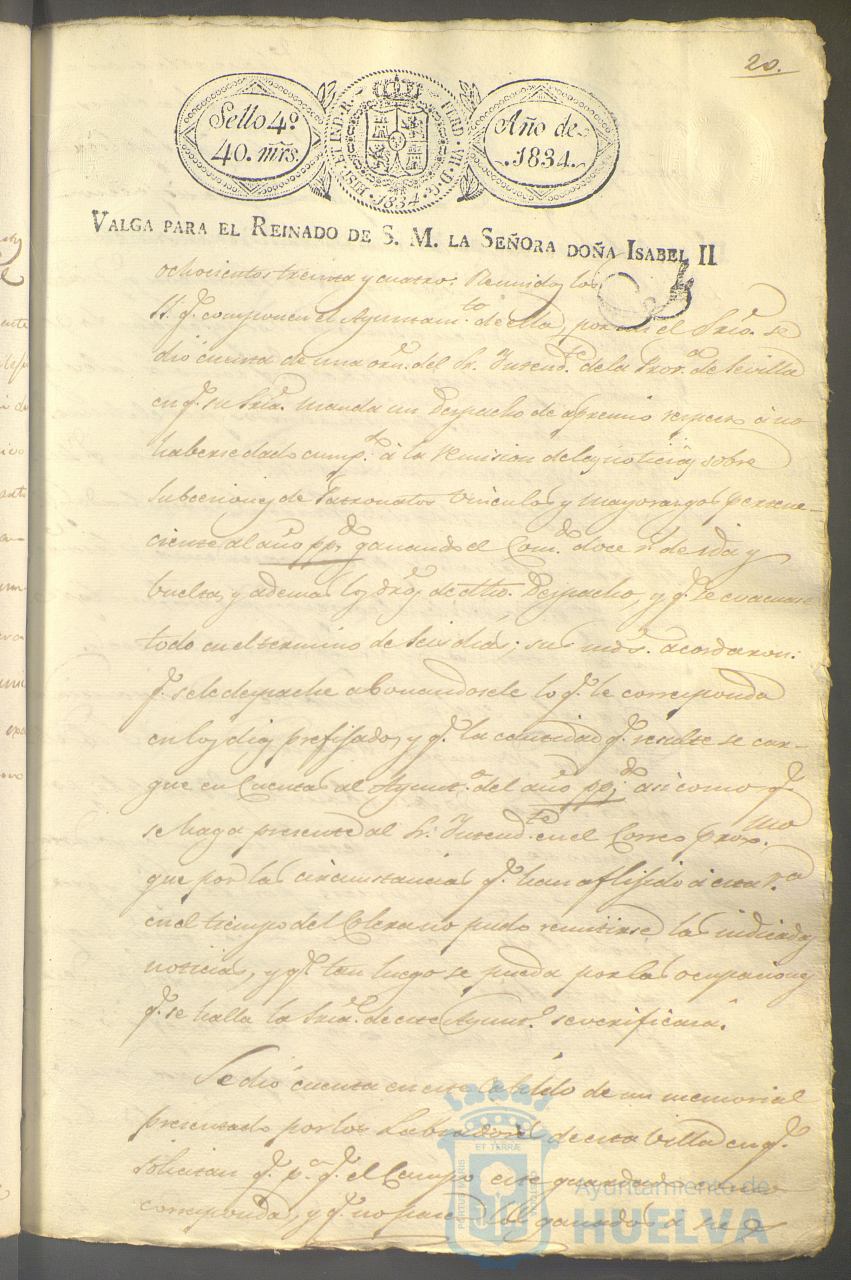 20.
Sello 4º
40. mrs.
HISP. ET IND. R. FERD. VII. D. G.
1834
Año de
1834.
VALGA PARA EL REINADO DE S. M. LA SEÑORA DOÑA ISABEL II
ochocientos treinta y cuatro: Reunidos los
SS. q.e componen el Ayuntam.to de ella, por mi el Srio. se
dió cuenta de una orn. del Sr. Intend.te de la Prov.a de Sevilla
en q.e su Sria. manda un Despacho de apremio respecto á no
haberse dado cump.to á la remision de las noticias sobre
subcesiones de Patronatos vinculos y mayorazgos pertene-
ciente al año pp.do ganando el Com.do doce r.s de ida y
buelta, y ademas los dros de dho. Despacho, y q.e se evacuase
todo en el termino de seis dias; sus mds. acordaron:
q.e se le despache abonandosele lo q.e le corresponda
en los dias prefijados, y q.e la cantidad q.e resulte se car-
gue en Cuentas al Ayunt.o del año pp.do asi como q.e
se haga presente al Sr. Intend.te en el Correo prox.mo
que por las circunstancias q.e han aflijido á esta V.a
en el tiempo del Colera no pudo remitirse las indicadas
noticias, y q.e tan luego se pueda por las ocupaciones
q.e se halla la Sria. de este Ayunt.o se verificará.
Se dió cuenta en este Cabildo de un memorial
presentado por los Labradores de esta Villa en q.e
solicitan q.e p.a q.e el Campo este guardado
corresponda, y q.e no los ganados
ET TERRÆ
Ayuntamiento de
HUELVA